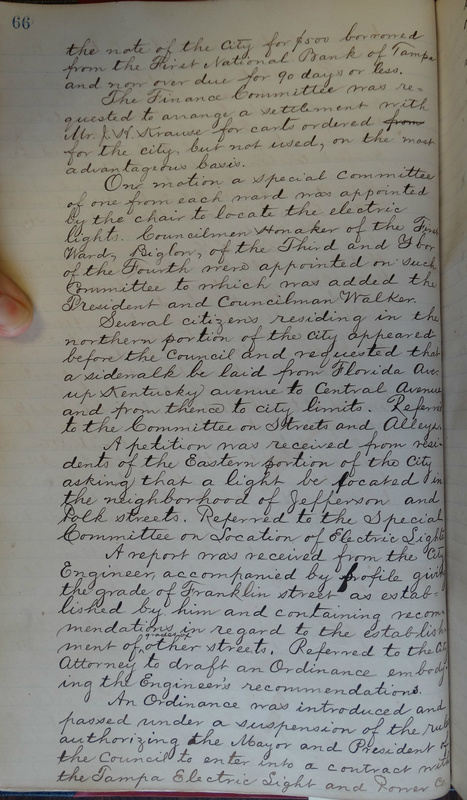 66
the note of the City for $500 borrowed
from the First National Bank of Tampa
and now over due for 90 days or less.
The Finance Committee was re-
quested to arrange a settlement with
Mr. J. H. Krause for carts ordered from
for the city, but not used, on the most
advantageous basis.
On motion a special Committee
of one from each ward was appointed
by the chair to locate the electric
lights. Councilmen Honaker of the First
Ward, Biglow, of the Third and Ybor
of the Fourth were appointed on such
Committee to which was added the
President and Councilman Walker.
Several citizens residing in the
northern portion of the city appeared
before the Council and requested that
a sidewalk be laid from Florida Ave.
up Kentucky avenue to Central Avenue
and from thence to city limits. Referr
to the Committee on Streets and Alleys.
A petition was received from resi-
dents of the Eastern portion of the City
asking that a light be located in
the neighborhood of Jefferson and
Polk streets. Referred to the Special
Committee on Location of Electric Lights
A report was received from the City
Engineer, accompanied by profile givi
the grade of Franklin street as estab-
lished by him and containing recom-
mendations in regard to the establish
ment of grades of other streets. Referred to the City
Attorney to draft an Ordinance embody-
ing the Engineer's recommendations.
An Ordinance was introduced and
passed under a suspension of the rules
authorizing the Mayor and President of
the Council to enter into a contract with
the Tampa Electric Light and Power Co.